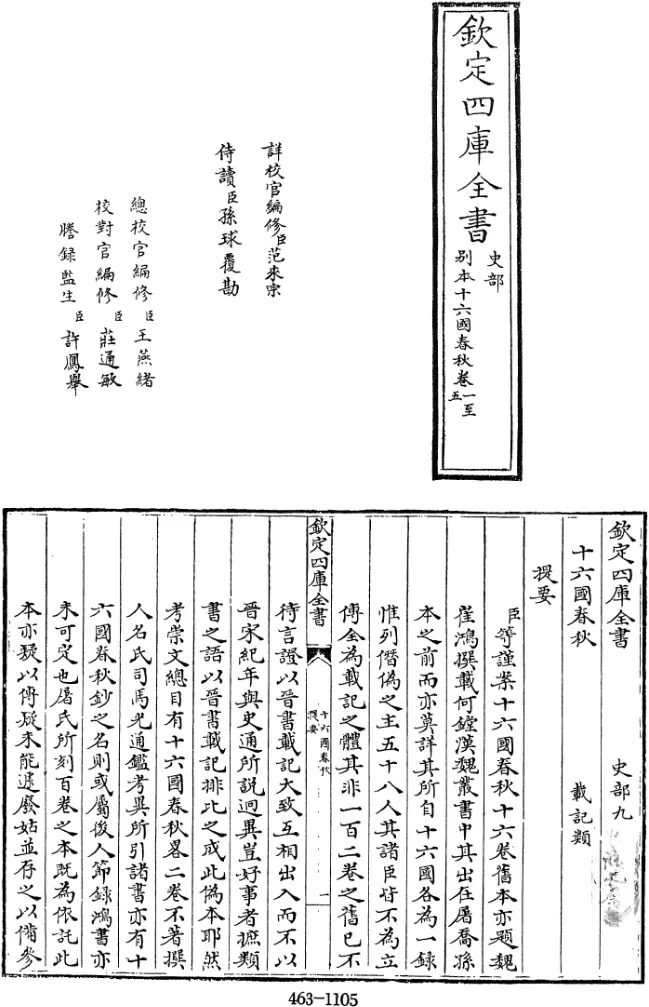 欽定四庫全書
史部
別本十六國春秋卷一至五
詳校官編修臣范來宗
侍讀臣孫球覆勘
總校官編修臣王燕緒
校對官編修臣莊通敏
謄録監生臣許鳳舉
欽定四庫全書
史部九
十六國春秋
載記類
提要
臣等謹案十六國春秋十六卷舊本亦題魏
崔鴻撰載何鏜漢魏叢書中其出在屠喬孫
本之前而亦莫詳其所自十六國各為一錄
惟列僭偽之主五十八人其諸臣皆不為立
傳全為載記之體其非一百二卷之舊已不
欽定四庫全書
十六國春秋
提要
一
待言證以晉書載記大致互相出入而不以
晉宋紀年與史通所說迥異豈好事者摭類
書之語以晉書載記排比之成此偽本耶然
考崇文總目有十六國春秋畧二卷不著撰
人名氏司馬光通鑑考異所引諸書亦有十
六國春秋鈔之名則或屬後人節録鴻書亦
未可定也屠氏所刻百卷之本既為依託此
本亦疑以傳疑未能遽廢姑並存之以備參
463-1105